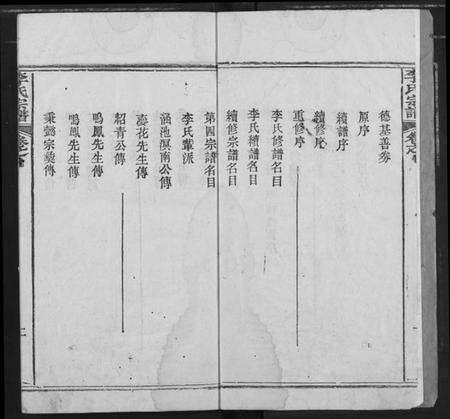 李氏宗譜
德基善券
原序
續譜序
續修序
重修序
李氏修譜名目
李氏續譜名目
續修宗譜名目
第四宗譜名目
李氏輩派
涵池溟南公傳
臺花先生傳
韶青公傳
鳴鳳先生傳
鳴鳳先生傳
秉懿宗奠傳
李氏宗譜